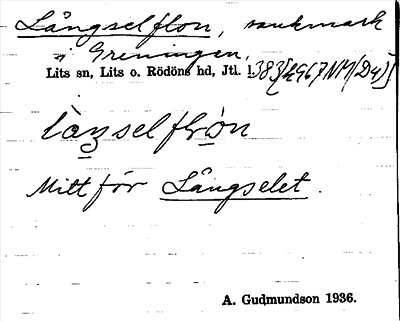 Långselflon, sankmark
i Greningen,
Lits sn, Lits o. Rödöns hd, Jtl.
làŋselflòn
Mitt för Långselet.
A. Gudmundson 1936.